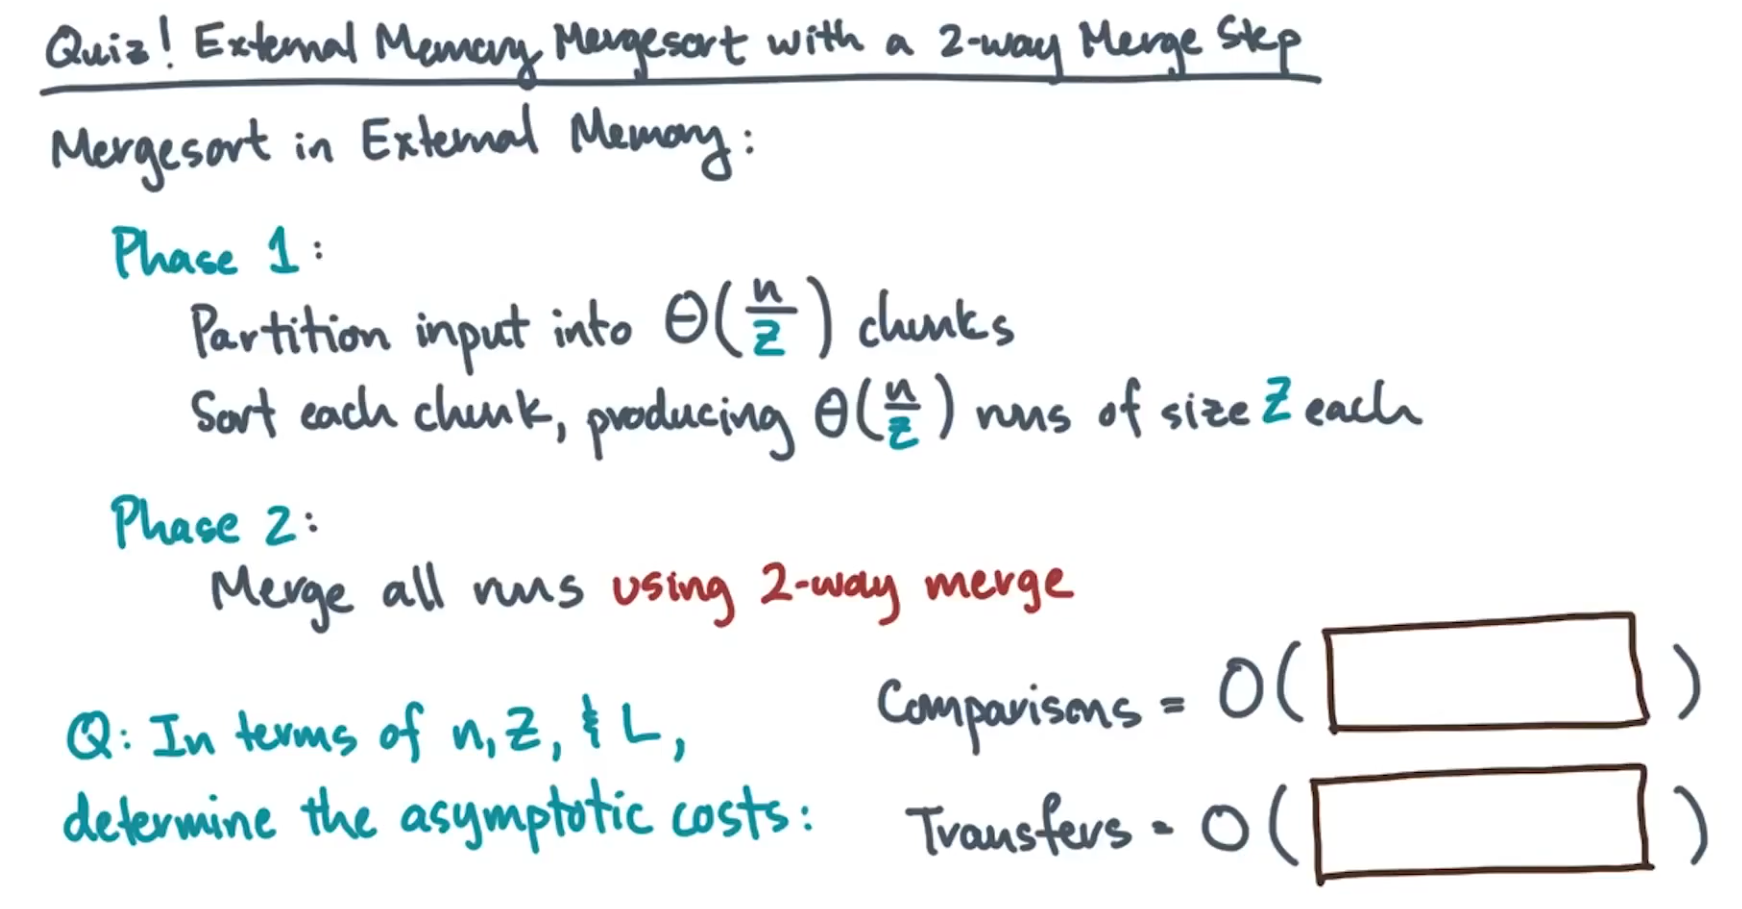 Quiz! External Memory Mergesort with a 2-way Merge Step
Mergesort in External Memory:
Phase 1:
Partition input into Θ(n/Z) chunks
Sort each chunk, producing Θ(n/Z) runs of size Z each
Phase 2:
Merge all runs using 2-way merge
Q: In terms of n, Z, & L,
determine the asymptotic costs:
Comparisons = O( )
Transfers = O( )